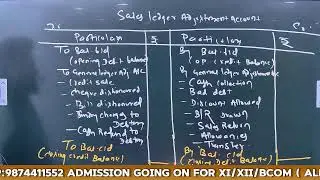 Sales ledger Adjustment Account
Dr. Cr.
Particulars ₹ Particulars ₹
To Bal. b/d
(opening Debit balance)
To General ledger Adj A/c
- Credit sale
- cheque dishonoured
- B/R dishonoured
- Sundry charges to Debtors
- Cash Refund to Debtors
To Bal. c/d
(closing Credit Balance)
By Bal. b/d
(op. credit Balance)
By General ledger Adjustment
- Cash collection
- Bad debt
- Discount Allowed
- B/R Drawn
- Sales Return
- Allowances
- Transfer
By Bal. c/d
(closing Debit Balance)
P:9874411552 ADMISSION GOING ON FOR XI/XII/BCOM ( AL